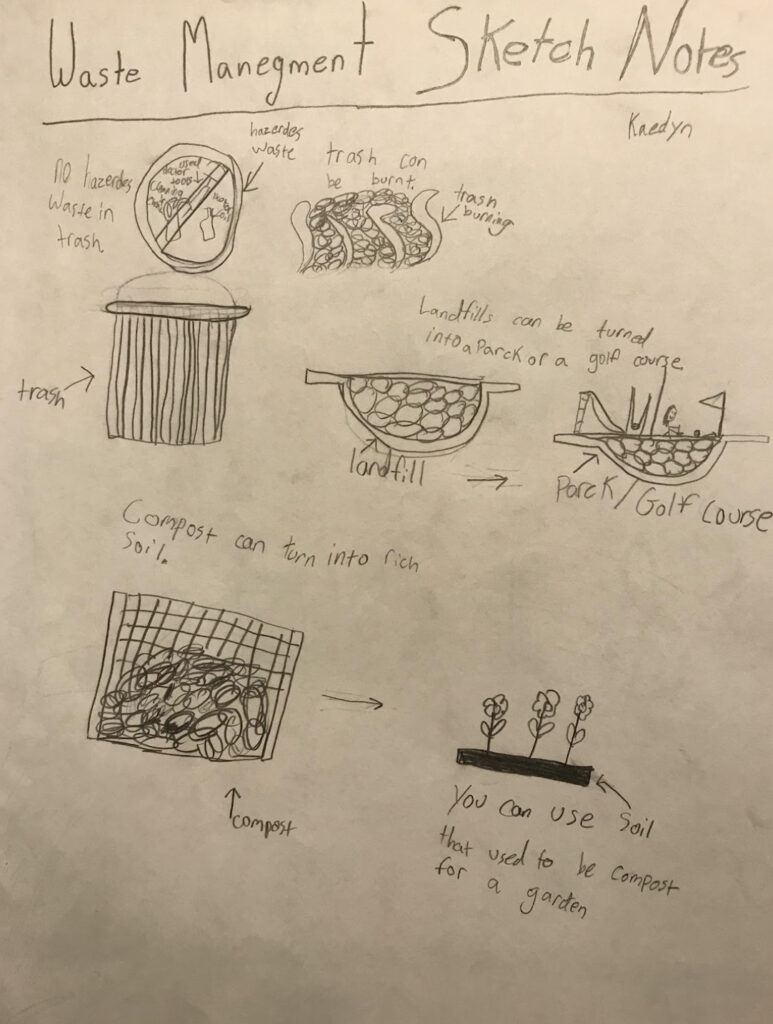 Waste Manegment Sketch Notes
Kaedyn
no hazerdes
waste in
trash
used
doctor
tools
cleaning
motor
oil
hazerdes
waste
trash can
be burnt.
trash
burning
trash
Landfills can be turned
into a Parck or a golf course
landfill
Parck/Golf course
Compost can turn into rich
Soil.
compost
Soil
You can use
that used to be compost
for a garden